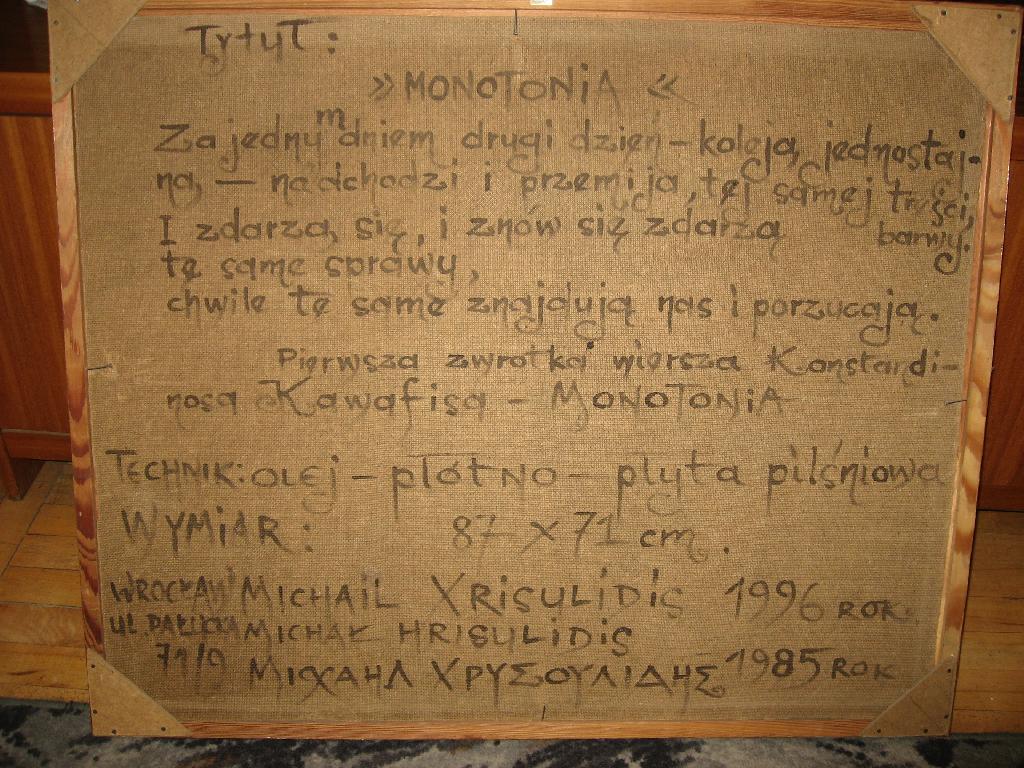 Tytuł:
» MONOTONiA «
Za jednym dniem drugi dzień – koleją jednostaj-
ną, — nadchodzi i przemija, tej samej treści,
I zdarzą się, i znów się zdarzą barwy.
tę same sprawy,
chwile tę same znajdują nas i porzucają.
Pierwsza zwrotka wiersza Konstandi-
nosa Kawafisa – MONOTONiA
TECHNIK: OLEj – płótno – płyta pilśniowa
WYMiAR: 87 × 71 cm.
WROCŁAW MiCHAiL XRiSULiDiS 1996 ROK.
UL. MiCHAŁ HRiSULiDiS
71/9 ΜΙΧΑΗΛ ΧΡΥΣΟΥΛΙΔΗΣ 1985 ROK